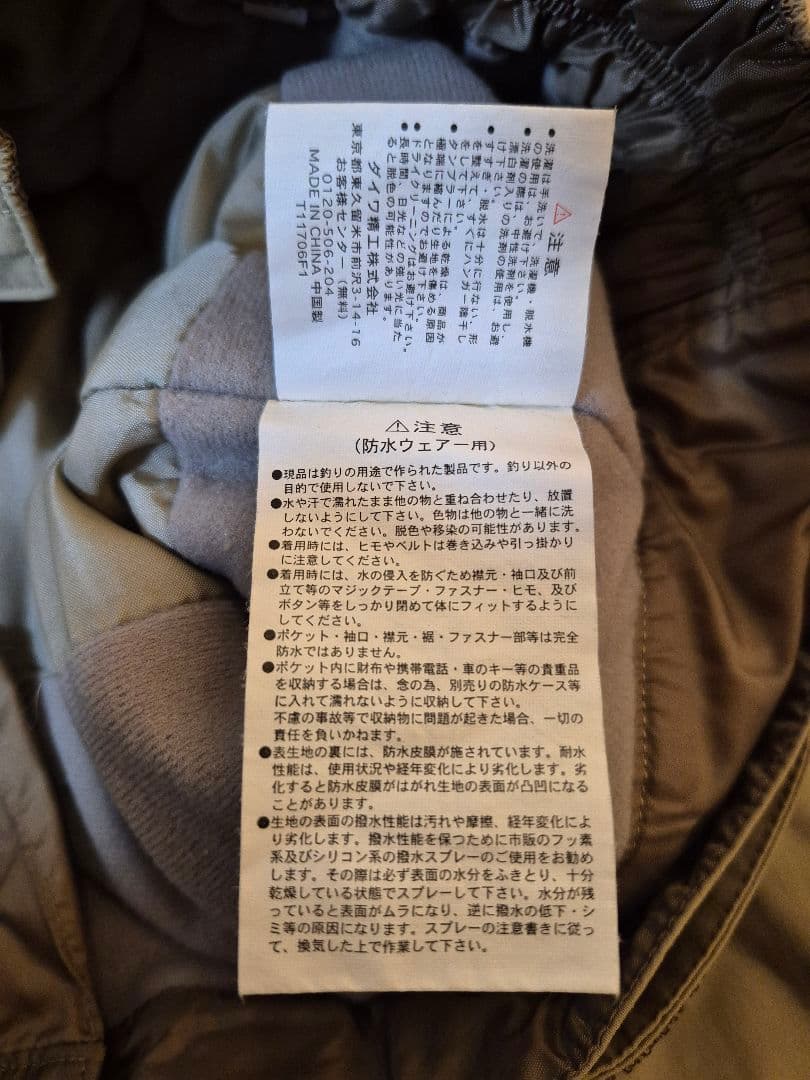 ⚠注意
●洗濯は手洗いで、洗濯機・脱水機
の使用は、お避け下さい。
●洗濯の際は、中性洗剤を使用し、
漂白剤入りの洗剤の使用は、お避
け下さい。
●すすぎ・脱水は十分に行ない、形
を整えて、すぐにハンガー陰干し
をして下さい。
●タンブラーによる乾燥は、商品が
極端に縮んだり生地を傷める原因
となりますのでお避け下さい。
●ドライクリーニングはお避け下さい。
●長時間、日光などの強い光に当た
ると脱色の可能性があります。
ダイワ精工株式会社
東京都東久留米市前沢3-14-16
お客様センター(無料)
0120-506-204
MADE IN CHINA 中国製
T11706F1
⚠注意
(防水ウェアー用)
●現品は釣りの用途で作られた製品です。釣り以外の
目的で使用しないで下さい。
●水や汗で濡れたまま他の物と重ね合わせたり、放置
しないようにして下さい。色物は他の物と一緒に洗
わないでください。脱色や移染の可能性があります。
●着用時には、ヒモやベルトは巻き込みや引っ掛かり
に注意してください。
●着用時には、水の侵入を防ぐため襟元・袖口及び前
立て等のマジックテープ・ファスナー・ヒモ、及び
ボタン等をしっかり閉めて体にフィットするように
してください。
●ポケット・袖口・襟元・裾・ファスナー部等は完全
防水ではありません。
●ポケット内に財布や携帯電話・車のキー等の貴重品
を収納する場合は、念の為、別売りの防水ケース等
に入れて濡れないように収納して下さい。
不慮の事故等で収納物に問題が起きた場合、一切の
責任を負いかねます。
●表生地の裏には、防水皮膜が施されています。耐水
性能は、使用状況や経年変化により劣化します。劣
化すると防水皮膜がはがれ生地の表面が凸凹になる
ことがあります。
●生地の表面の撥水性能は汚れや摩擦、経年変化によ
り劣化します。撥水性能を保つために市販のフッ素
系及びシリコン系の撥水スプレーのご使用をお勧め
します。その際は必ず表面の水分をふきとり、十分
乾燥している状態でスプレーして下さい。水分が残
っていると表面がムラになり、逆に撥水の低下・シ
ミ等の原因になります。スプレーの注意書きに従っ
て、換気した上で作業して下さい。